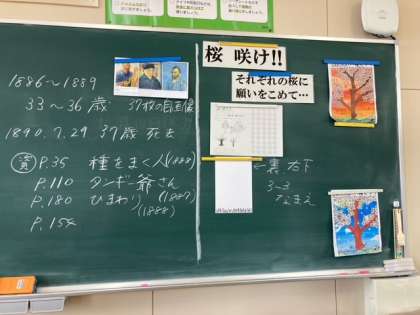 1886〜1889
33〜36歳 37枚の自画像
1890.7.29 37歳 死去
資 P.35 種をまく人(1888)
P.110 タンギー爺さん
P.180 ひまわり (1887)
(1888)
P.154
桜 咲け!!
それぞれの桜に
願いをこめて…
裏 右下
3-3
なまえ